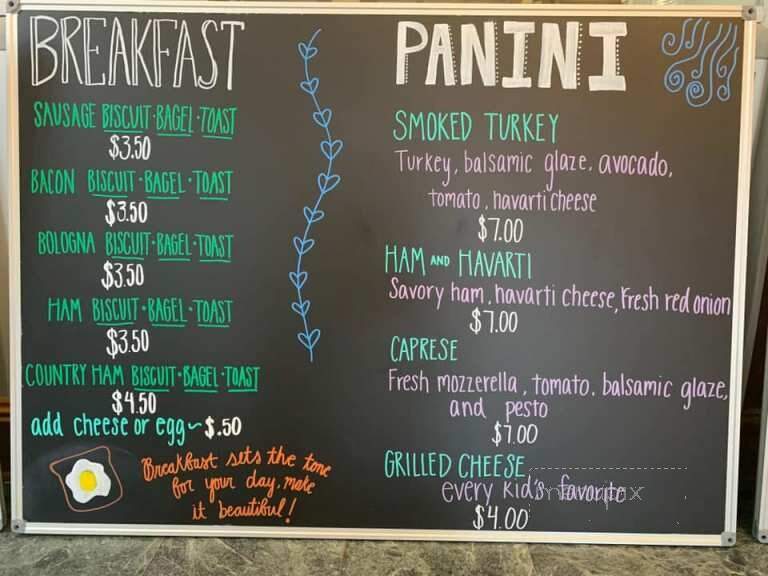 BREAKFAST
SAUSAGE BISCUIT · BAGEL · TOAST
$3.50
BACON BISCUIT · BAGEL · TOAST
$3.50
BOLOGNA BISCUIT · BAGEL · TOAST
$3.50
HAM BISCUIT · BAGEL · TOAST
$3.50
COUNTRY HAM BISCUIT · BAGEL · TOAST
$4.50
add cheese or egg ~ $.50
Breakfast sets the tone
for your day, make
it beautiful!
PANINI
SMOKED TURKEY
Turkey, balsamic glaze, avocado,
tomato, havarti cheese
$7.00
HAM AND HAVARTI
Savory ham, havarti cheese, Fresh red onion
$7.00
CAPRESE
Fresh mozzerella, tomato, balsamic glaze,
and pesto
$7.00
GRILLED CHEESE
every kid's favorite
$4.00